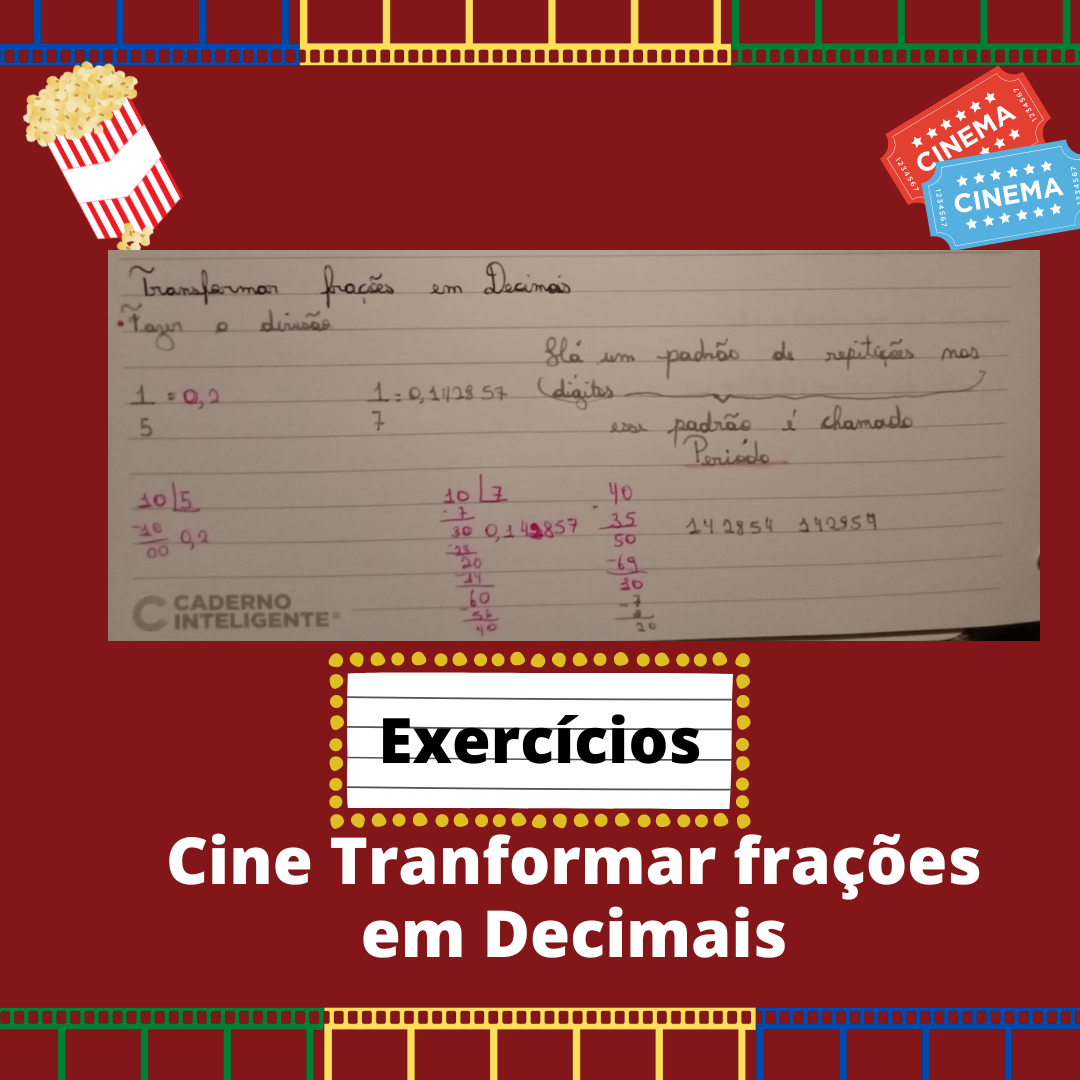 CINEMA
1234567
1234567
CINEMA
1234567
1234567
Transformar frações em Decimais
• Fazer a divisão
Há um padrão de repitições nos
dígitos
1/5 = 0,2
1/7 = 0,142857
esse padrão é chamado
Periódo
10 5
-10 0,2
00
10 7
-7
30 0,142857
-28
20
-14
60
-56
40
40
-35
50
-69
10
-7
20
142854 142954
CADERNO
INTELIGENTE®
Exercícios
Cine Tranformar frações
em Decimais